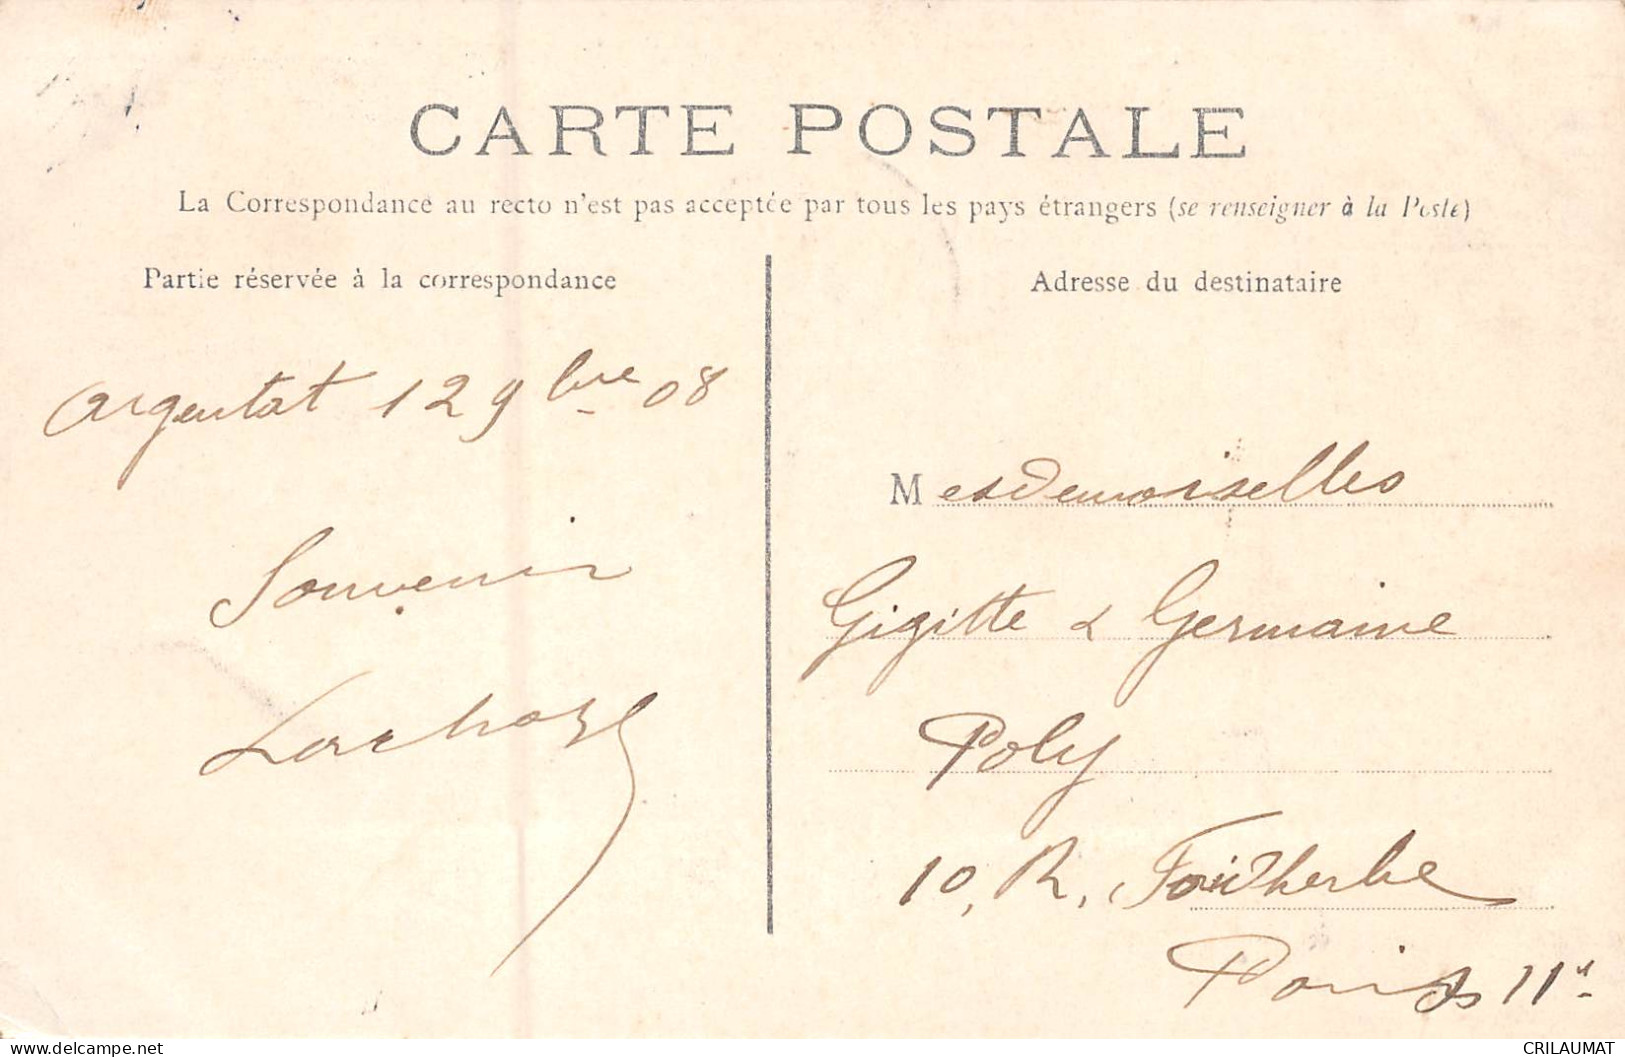 CARTE POSTALE
La Correspondance au recto n'est pas acceptée par tous les pays étrangers (se renseigner à la Poste)
Partie réservée à la correspondance
Adresse du destinataire
Argentat 12 9bre 08
Souvenir
Mesdemoiselles
Gigitte & Germaine
Poly
10, R. Faidherbe
Paris 11e
CRILAUMAT
www.delcampe.net